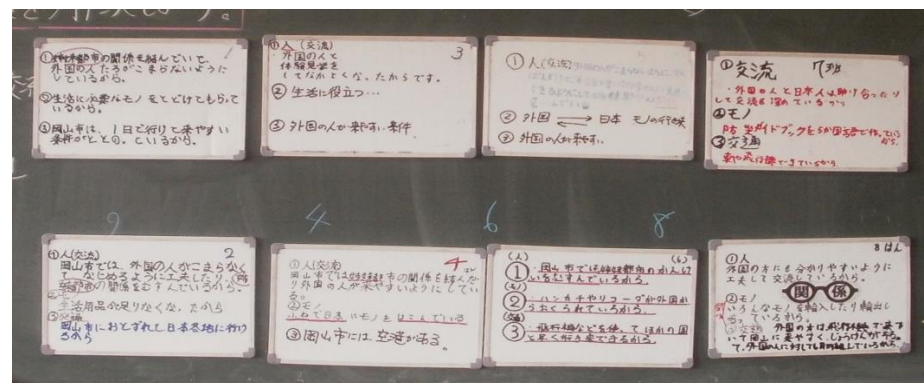 ①姉妹都市の関係を結んでいて、
外国の人たちがこまらないように
しているから。
②生活に必要なモノをとどけてもらって
いるから。
③岡山市は、1日で行って来やすい
条件がととのっているから。
3
①人(交流)
・外国の人と
体験見学を
してなかよくなったからです。
②生活に役立つ…
③外国の人が来やすい条件
①人(交流)
②外国 ⇄ 日本 モノの行き来
③外国の人が来やすい。
①交流 7班
・外国の人と日本人は助け合ったり
して交流を深めているから
②モノ
防災ガイドブックを5か国語で作っている
から。
③交通
2
4
6
8
①人(交流) 2
岡山市では、外国の人がこまらなく
て、なじめるように工夫したり、
の関係をむすんでいるから。
生活用品が足りなくなったから
③交通
岡山市におとずれ、日本各地に行け
るから
4
①人(交流)
岡山市では姉妹都市の関係を結んだ
り外国の人が来やすいようにしてい
る。
②モノ
ふねで日本にモノをはこんでいる
③岡山市には、空港がある。
(人) (6)
①・岡山市では姉妹都市のかんけ
いをむすんでいるから。
(モノ)
②・ハンカチやリコーダーが外国か
らおくられているから。
(交通)
③・飛行機などを使って ほかの国
と早く行き来できるから。
8はん
①人
外国の方にも分かりやすいように
工夫して交流しているから。
関係
②モノ
いろんなモノを輸入したり輸出し
たりしているから。
③交通 外国の方は、飛行機で来て
いて岡山に来やすく、じょうけんがそろっ
て、外国の人に対しても